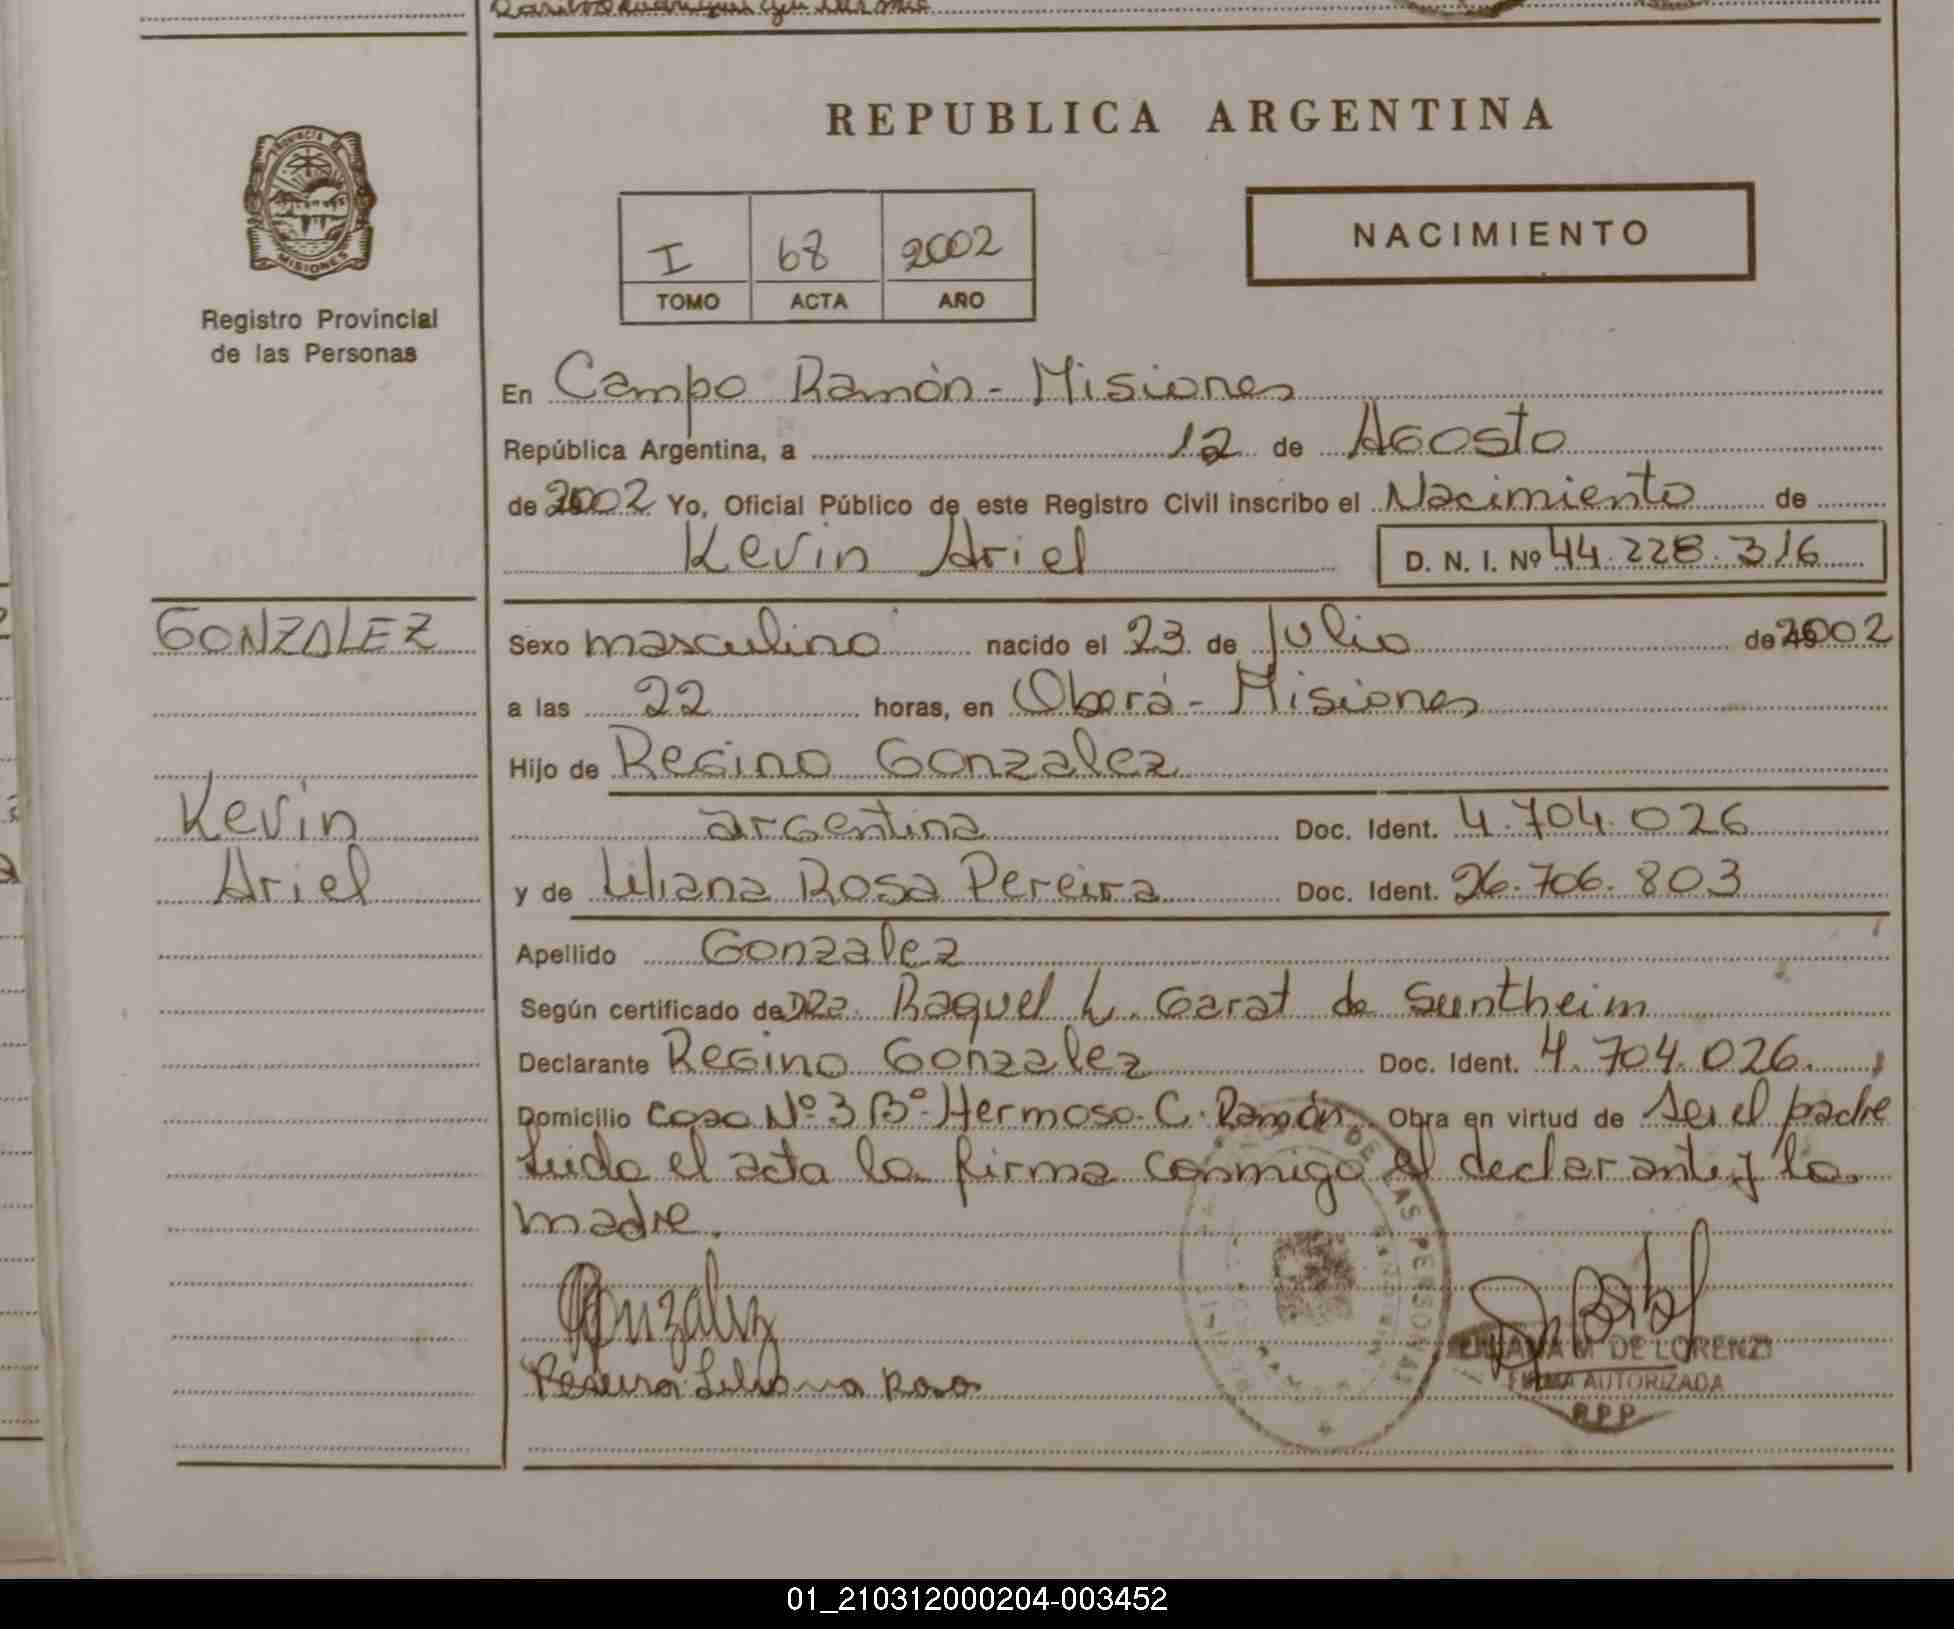 REPUBLICA ARGENTINA
PROVINCIA
MISIONES
Registro Provincial
de las Personas
I 68 2002
TOMO ACTA AÑO
NACIMIENTO
En Campo Ramón - Misiones
República Argentina, a 12 de Agosto
de 2002 Yo, Oficial Público de este Registro Civil inscribo el Nacimiento de
Kevin Ariel D. N. I. Nº 44.228.316
GONZALEZ
Kevin
Ariel
Sexo masculino nacido el 23 de Julio de 2002
a las 22 horas, en Oberá - Misiones
Hijo de Regino Gonzalez
argentina Doc. Ident. 4.704.026
y de Liliana Rosa Pereira Doc. Ident. 26.706.803
Apellido Gonzalez
Según certificado de DRa. Raquel L. Garat de Suntheim
Declarante Regino Gonzalez Doc. Ident. 4.704.026.
Domicilio casa Nº 3 Bº Hermoso. C. Ramón. Obra en virtud de ser el padre
Leida el acta la firma conmigo el declarante y la
madre.
Gonzalez
Pereira Liliana Rosa
DE LAS PERSONAS
LILIANA M DE LORENZI
FIRMA AUTORIZADA
R P P
01_210312000204-003452